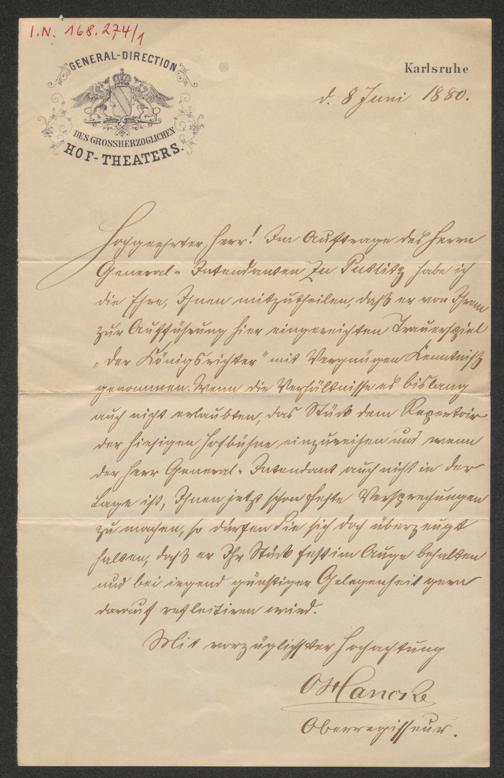 I.N. 168.274/1
GENERAL-DIRECTION
DES GROSSHERZOGLICHEN
HOF-THEATERS.
Karlsruhe
d. 8 Juni 1880.
Hochgeehrter Herr! Im Auftrage des Herrn
General-Intendanten zu Putlitz habe ich
die Ehre, Ihnen mitzutheilen, daß er von Ihrem
zur Aufführung hier eingereichten Trauerspiel
„Der Königsrichter" mit Vergnügen Kenntniß
genommen. Wenn die Verhältnisse es bislang
auch nicht erlaubten, das Stück dem Repertoir
der hiesigen Hofbühne einzureihen und wenn
der Herr General-Intendant auch nicht in der
Lage ist, Ihnen jetzt schon feste Versprechungen
zu machen, so dürfen Sie sich doch überzeugt
halten, daß er Ihr Stück fest im Auge behalten
und bei irgend günstiger Gelegenheit gern
darauf reflectiren wird.
Mit vorzüglichster Hochachtung
Hancke
Oberregisseur.